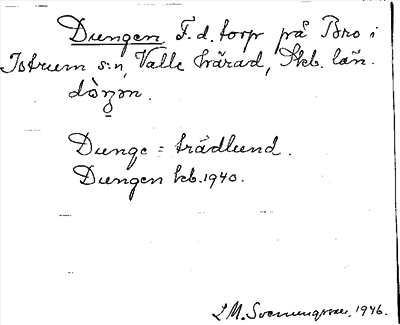 Dungen F.d. torp på Bro i
Istrum s:n, Valle härad, Skb. län.
dòŋən.
Dunge = trädlund.
Dungen kb. 1940.
L M. Svenungsson, 1946.